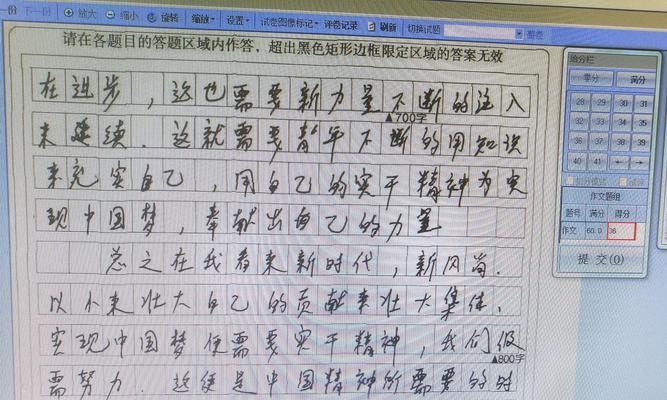 份 下一份 放大 缩小 旋转 缩放 设置 试卷图像标记 评卷记录 刷新 切换试题
请在各题目的答题区域内作答，超出黑色矩形边框限定区域的答案无效
在进步，这也需要新力量不断的注入
▲700字
来延续．这就需要青年不断的用知识
来充实自己，用自己的实干精神为实
现中国梦，奉献出自己的力量
总之在我看来新时代，新风尚．
以小来壮大自己的贡献来壮大集体，
实现中国梦便需要实干精神，我们
▲800字
需努力．这便是中国精神所需要的时
给分栏
零分 满分
28 29 30 31
32 33 34 35
36 37 38 39
40 41
作文题组
题号 满分 得分
作文 60.0 36
提 交(O)